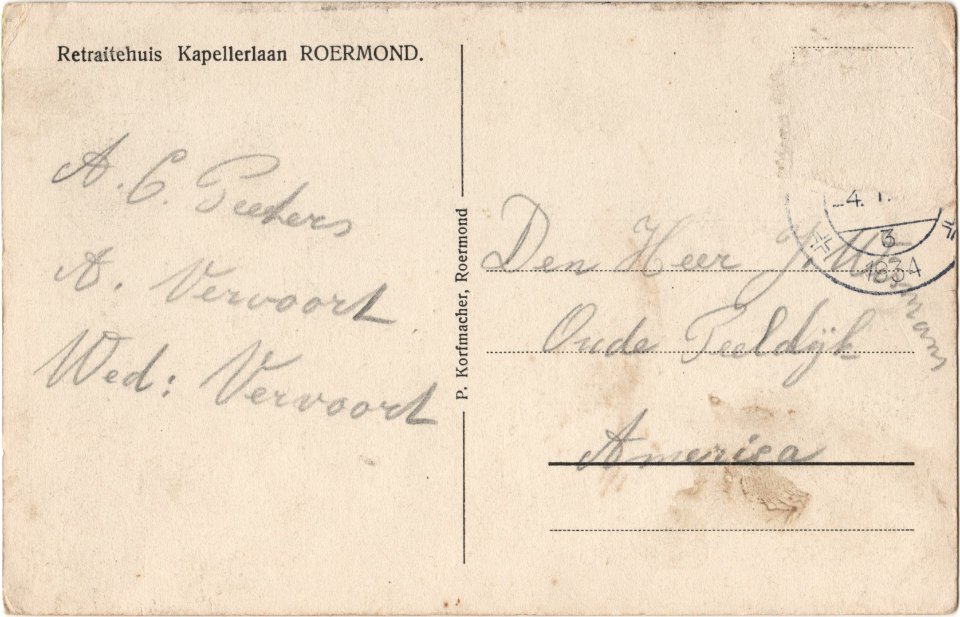 Retraitehuis Kapellerlaan ROERMOND.
A. C. Peeters
A. Vervoort
Wed: Vervoort
P. Korfmacher, Roermond
-4. 1.
3
1934
Den Heer J.
Oude Peeldijk
America